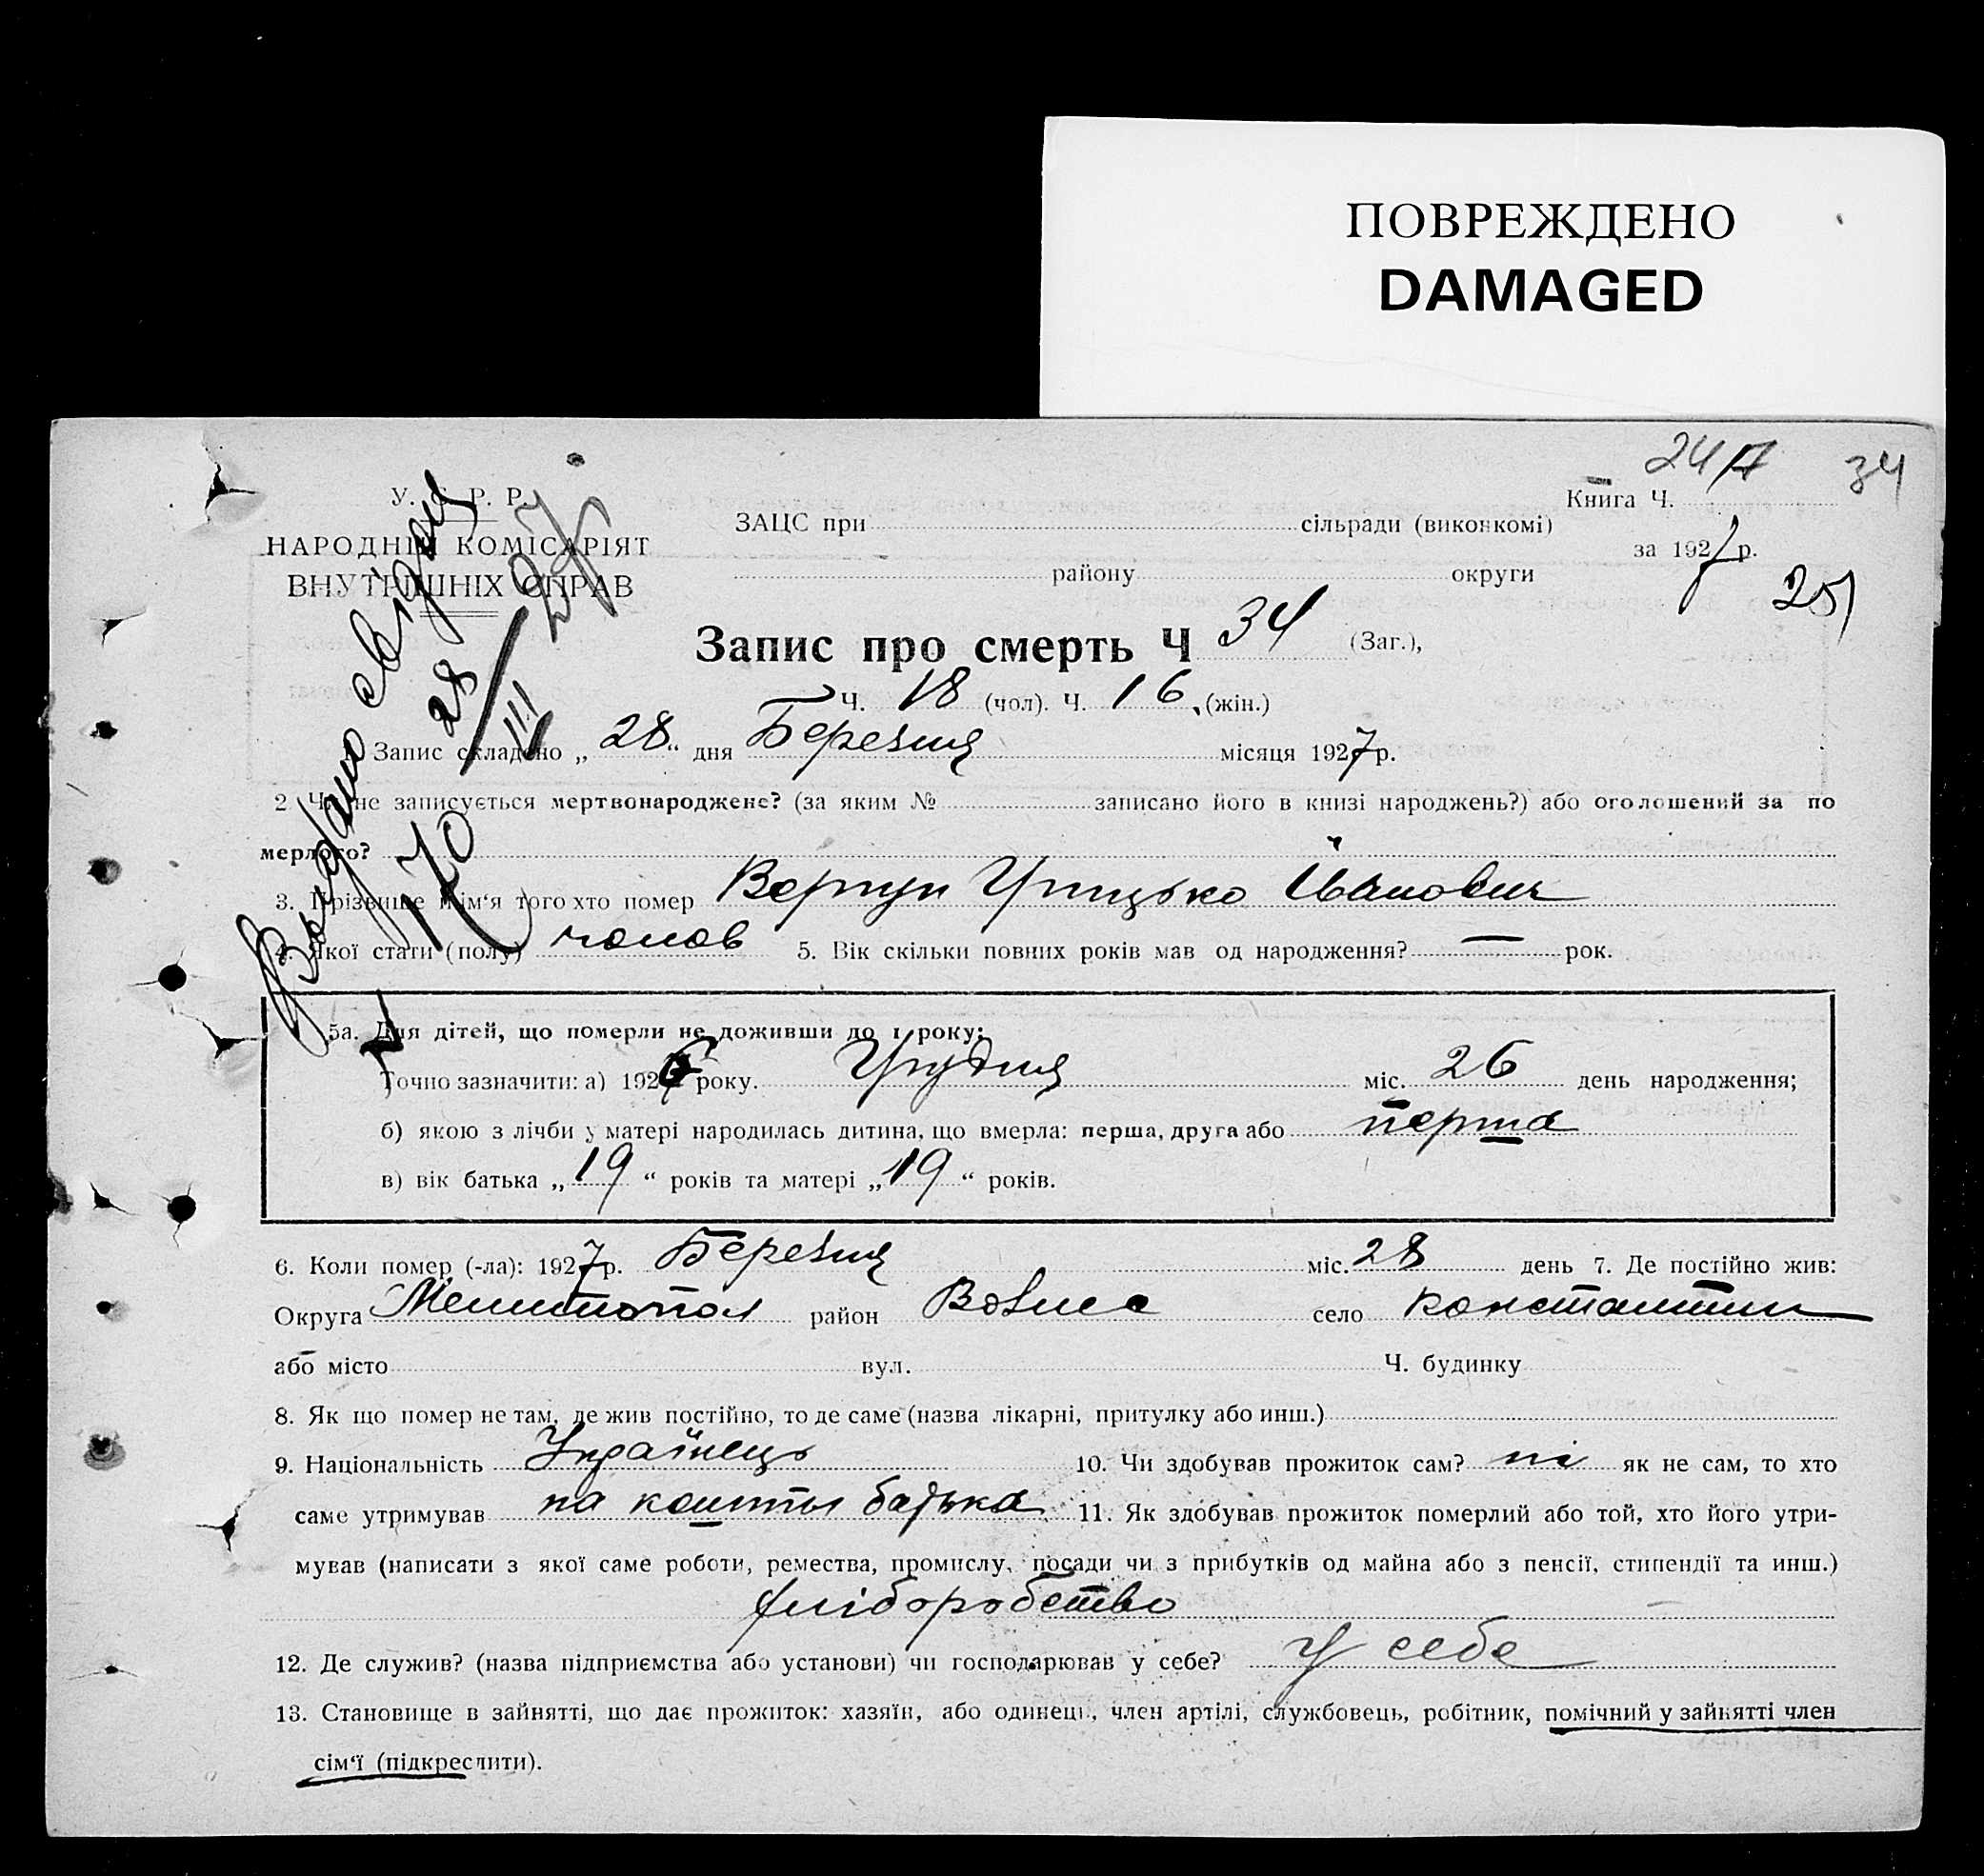 ПОВРЕЖДЕНО
DAMAGED
24 34
У. С. Р. Р.
НАРОДНІЙ КОМІСАРІЯТ
ВНУТРІШНІХ СПРАВ
Книга Ч.
ЗАЦС при сільради (виконкомі)
за 1927 р.
району округи
25
Запис про смерть Ч 34 (Заг.),
Ч. 18 (чол). Ч. 16 (жін.)
Видано свідоц
28/III 27
170
1. Запис складено „28“ дня Березня місяця 1927 р.
2 Чи не записується мертвонароджене? (за яким № записано його в книзі народжень?) або оголошений за по
мерлого?
3. Прізвище й ім‘я того хто помер Вергун Грицько Іванович
4. Якої стати (полу) чолов 5. Вік скільки повних років мав од народження? — рок.
5а. Для дітей, що померли не доживши до 1 року:
Точно зазначити: а) 1926 року. Грудня міс. 26 день народження;
б) якою з лічби у матері народилась дитина, що вмерла: перша, друга або перша
в) вік батька „19“ років та матері „19“ років.
6. Коли помер (-ла): 1927 р. Березня міс. 28 день 7. Де постійно жив:
Округа Мелитопол район Вознес село Константин
або місто вул. Ч. будинку
8. Як що помер не там, де жив постійно, то де саме (назва лікарні, притулку або инш.)
9. Національність Українець 10. Чи здобував прожиток сам? ні як не сам, то хто
саме утримував на кошты батька 11. Як здобував прожиток померлий або той, хто його утри-
мував (написати з якої саме роботи, ремества, промислу, посади чи з прибутків од майна або з пенсії, стипендії та инш.)
хліборобство
12. Де служив? (назва підприємства або установи) чи господарював у себе? У себе
13. Становище в зайнятті, що дає прожиток: хазяїн, або одинець, член артілі, службовець, робітник, помічний у зайнятті член
сім‘ї (підкреслити).